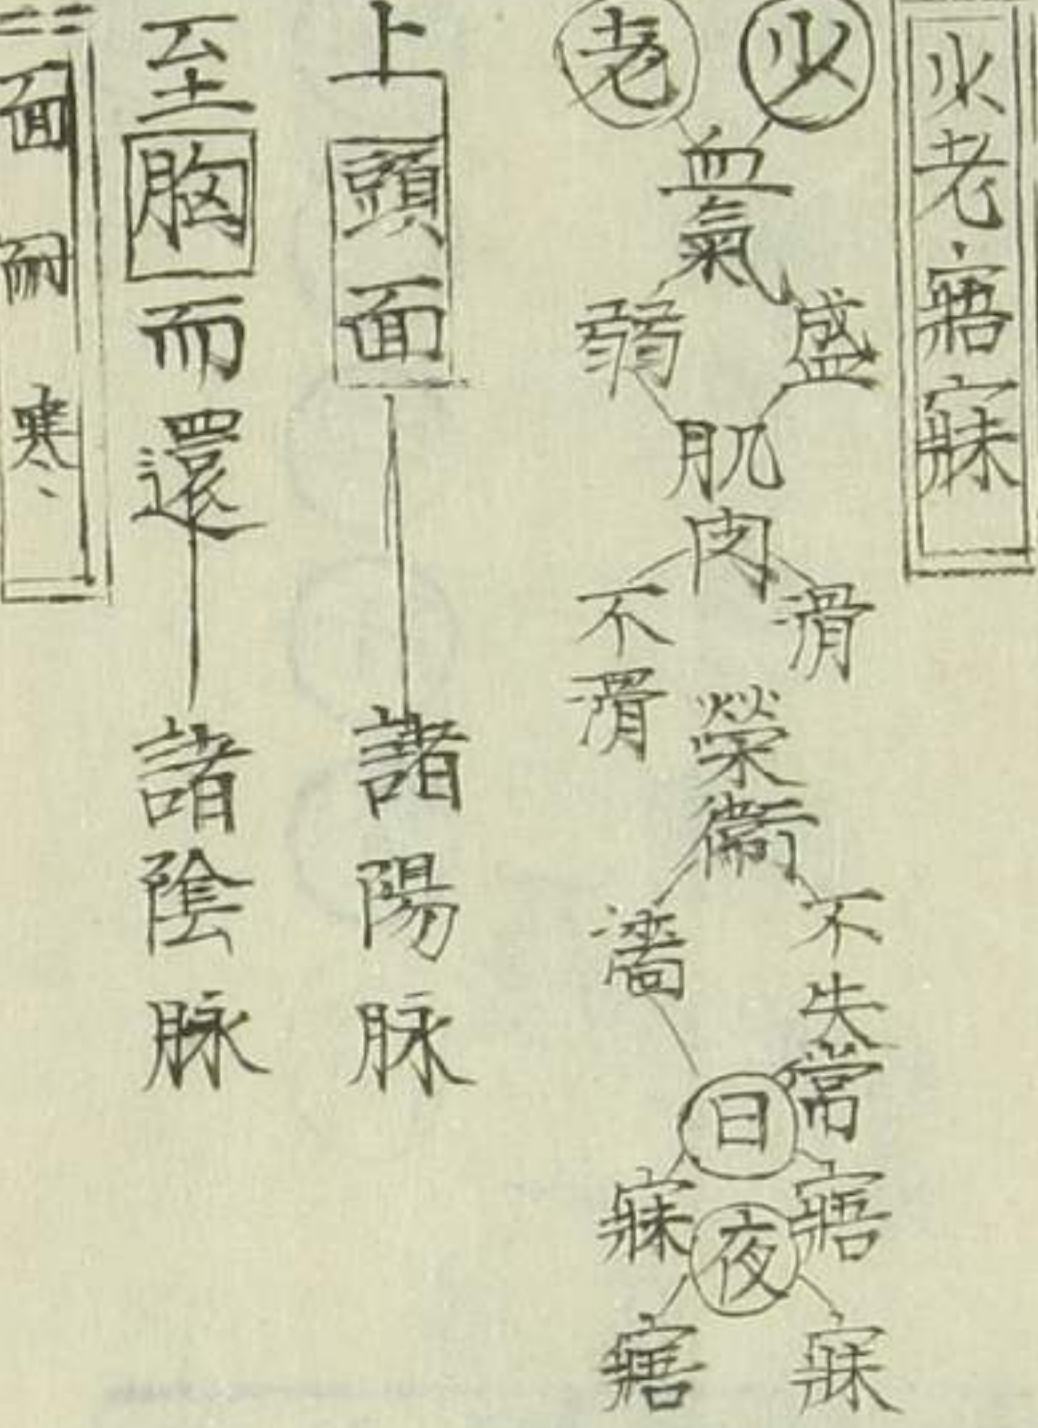 少老寤寐
少 老
血氣
盛 弱
肌肉
滑 不滑
榮衛
不失常 濇
日
寤 寐
夜
寐 寤
上頭面 諸陽脉
至胸而還 諸陰脉
面耐寒